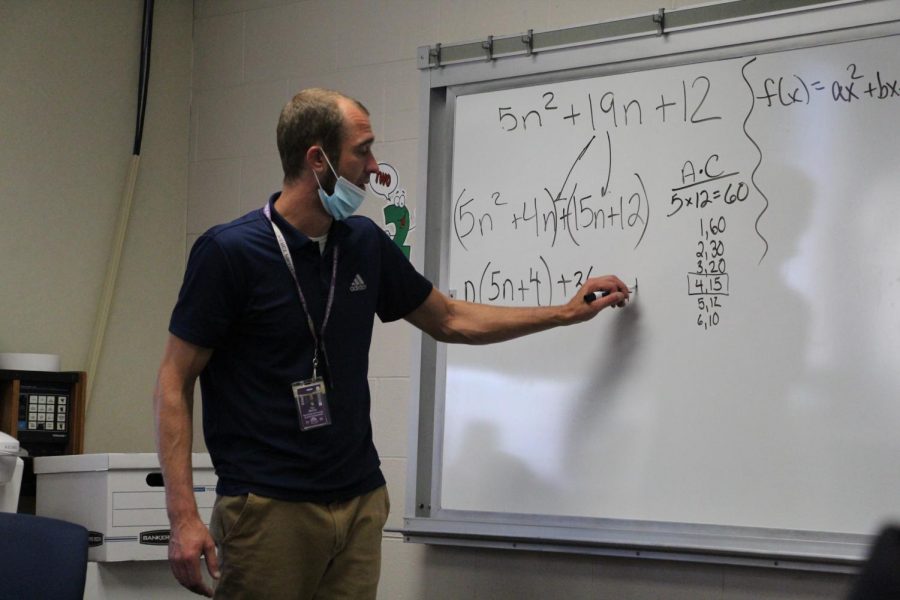 5n² + 19n + 12
(5n² + 4n) + (15n + 12)
n(5n + 4) + 3(
A·C
5×12=60
1,60
2,30
3,20
4,15
5,12
6,10
f(x) = ax² + bx
TWO
2
adidas
BANKER